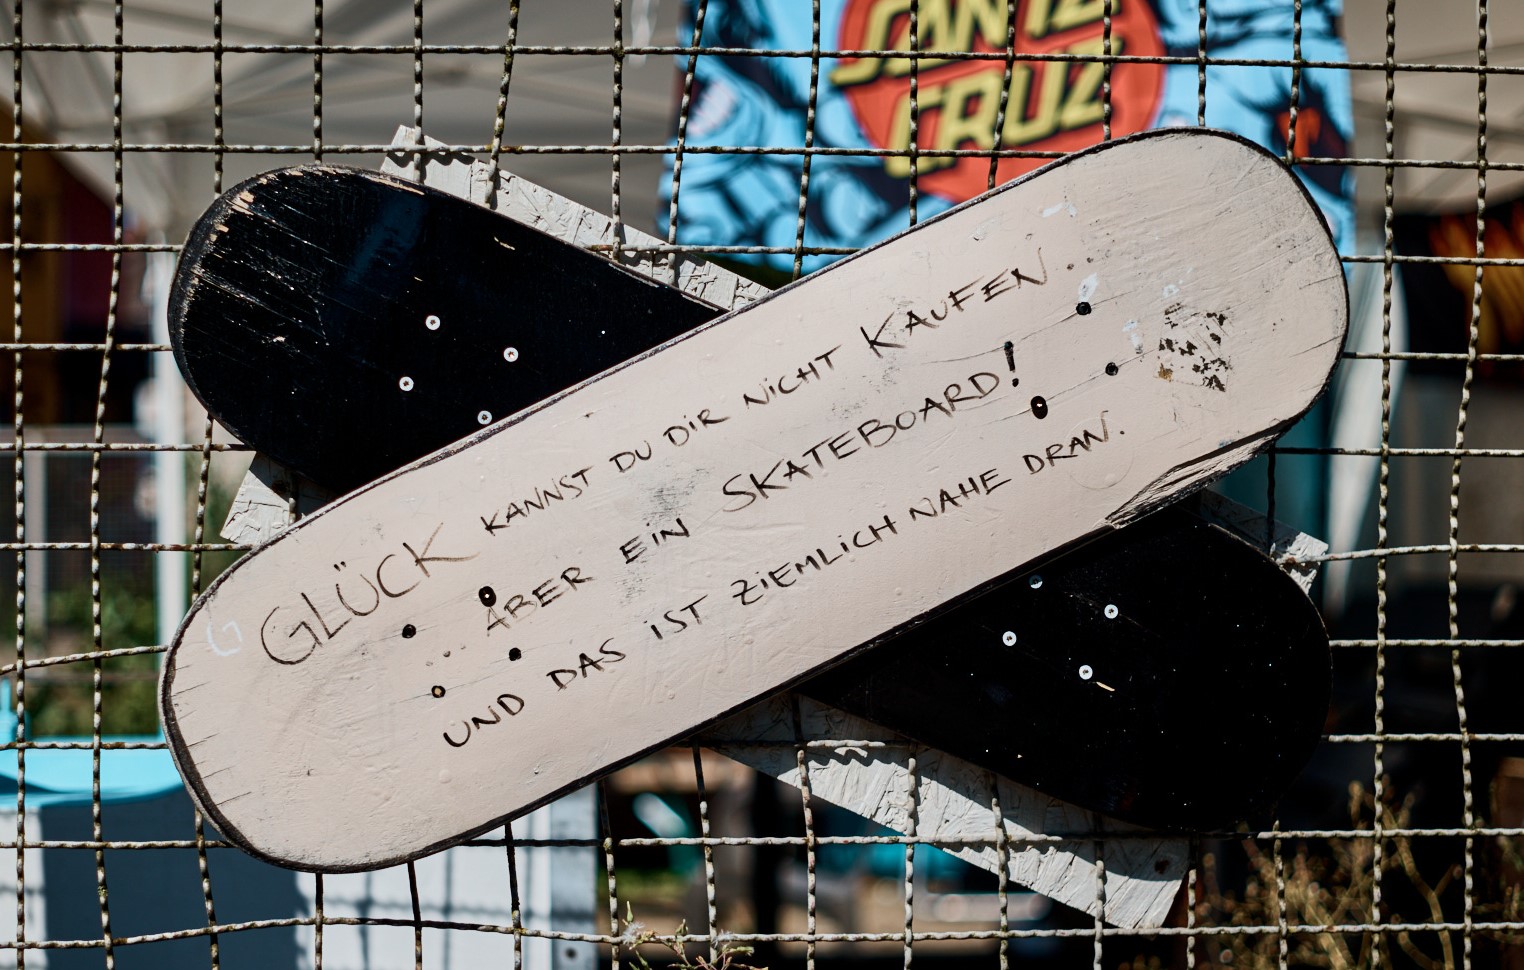 SANTA
CRUZ
GLÜCK KANNST DU DIR NICHT KAUFEN...
ABER EIN SKATEBOARD!
UND DAS IST ZIEMLICH NAHE DRAN.
G